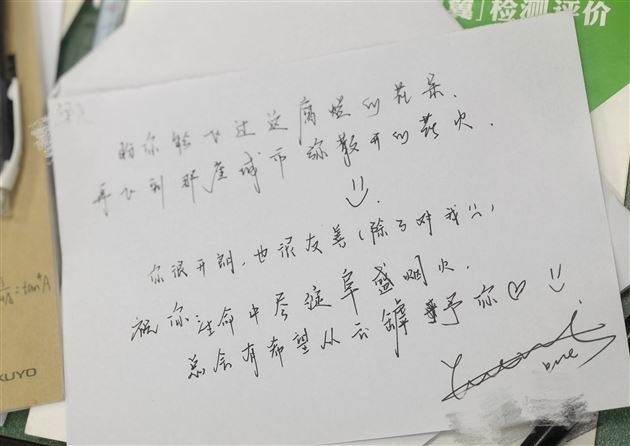 翼」检测评价
盼你能飞过这腐烂的花朵.
再飞到那座城市弥散开的花火.
你很开朗, 也很友善(除了对我
祝你生命中尽绽阜盛烟火.
总会有希望从云罅予你♡
KUYO